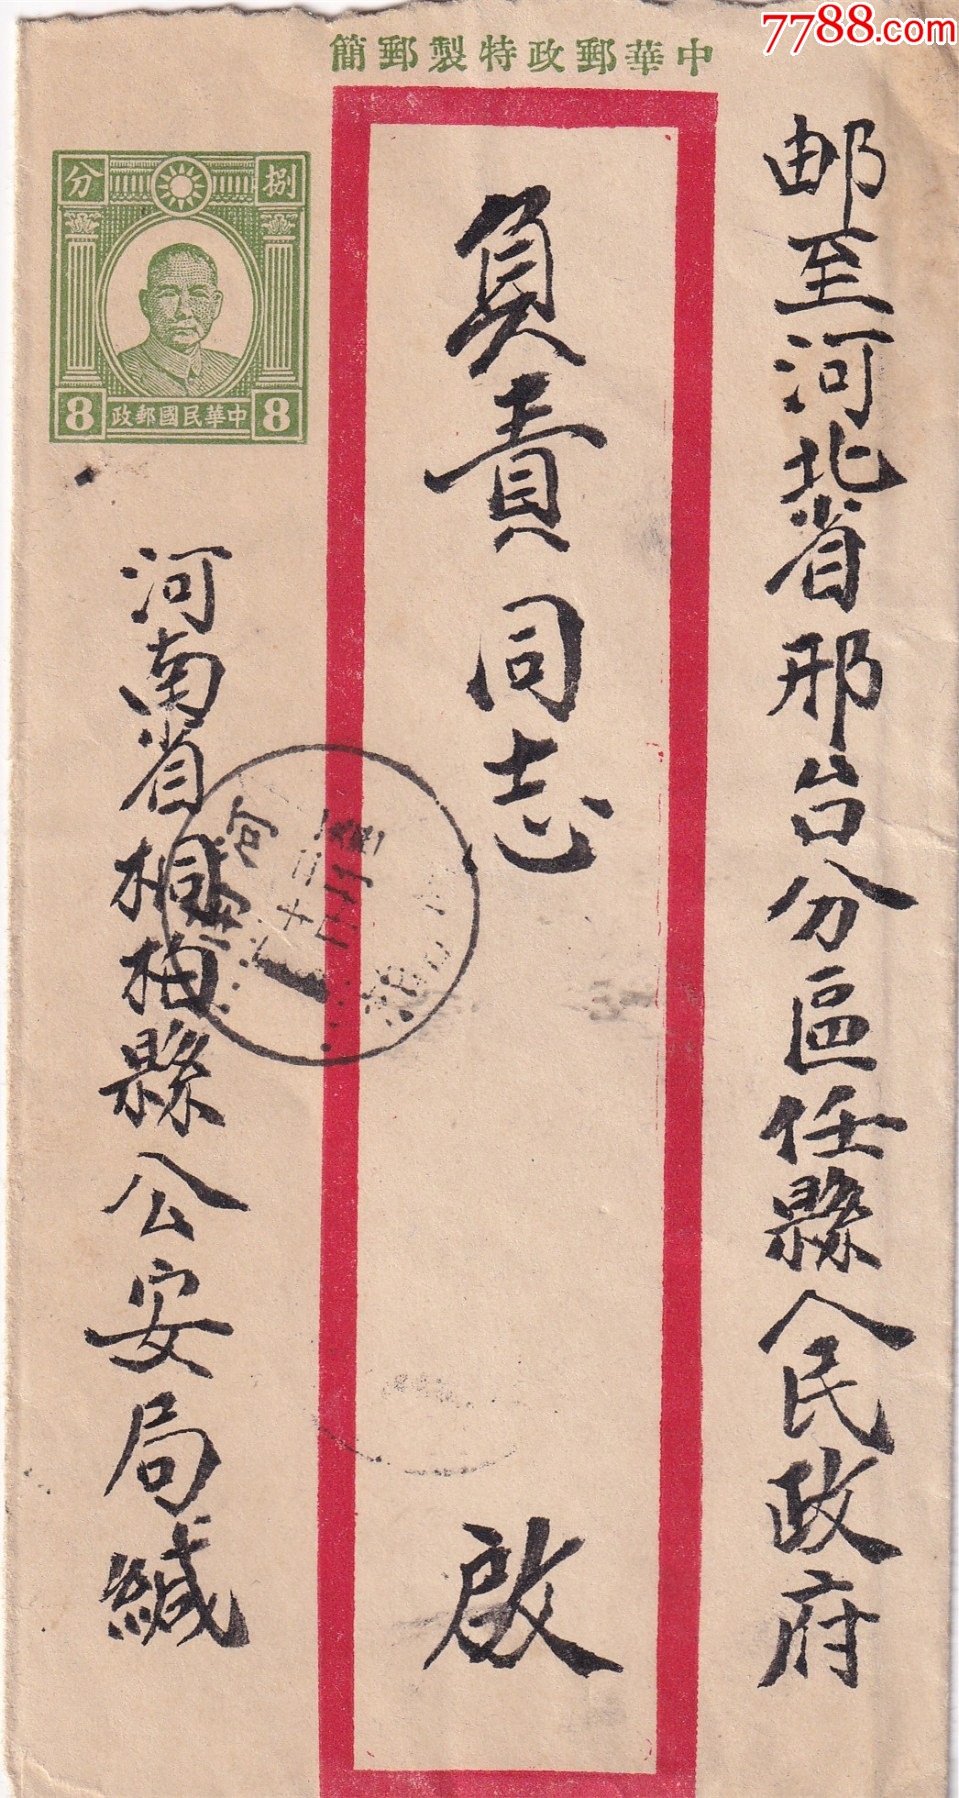 7788.com
中華郵政特製郵簡
邮至河北省邢台分區任縣人民政府
負責同志 啟
捌分
中華民國郵政
8 8
河南省桐柏縣公安局緘
河南